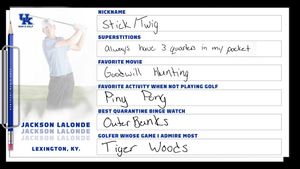 UK
MEN'S GOLF
NICKNAME
Stick/Twig
SUPERSTITIONS
always have 3 quarters in my pocket
FAVORITE MOVIE
Goodwill Hunting
FAVORITE ACTIVITY WHEN NOT PLAYING GOLF
Ping Pong
BEST QUARANTINE BINGE WATCH
Outer Banks
GOLFER WHOSE GAME I ADMIRE MOST
Tiger Woods
JACKSON LALONDE
JACKSON LALONDE
JACKSON LALONDE
LEXINGTON, KY.